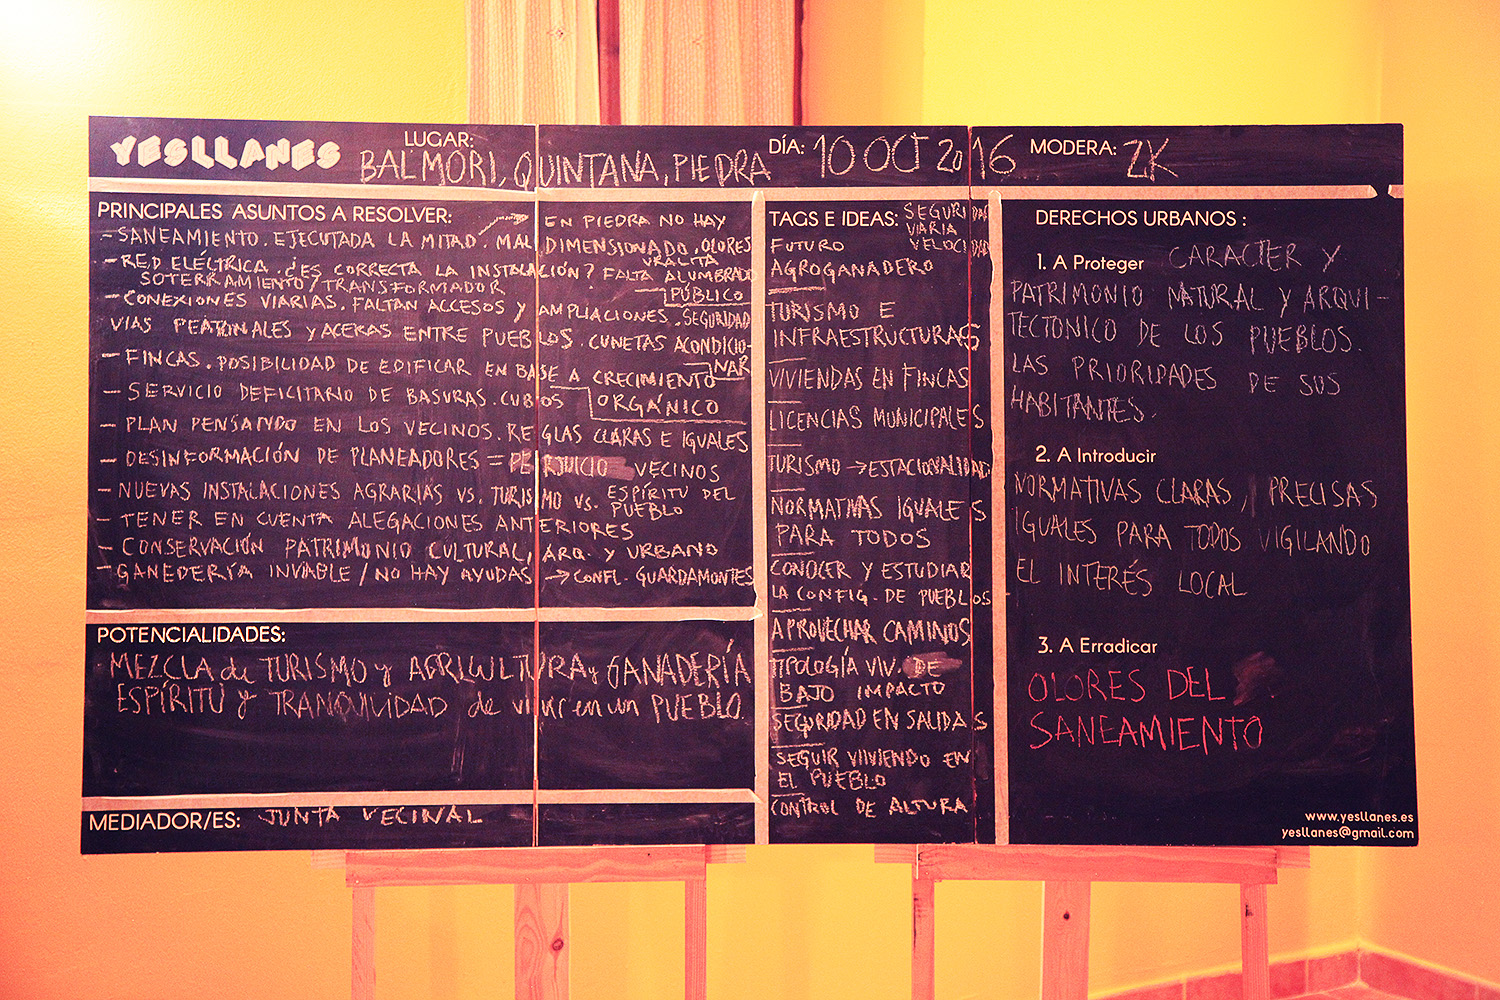 YESLLANES
LUGAR:
BALMORI, QUINTANA, PIEDRA
DÍA: 10 OCT 2016
MODERA: ZK
PRINCIPALES ASUNTOS A RESOLVER:
EN PIEDRA NO HAY
- SANEAMIENTO. EJECUTADA LA MITAD. MAL DIMENSIONADO. OLORES
URALITA
- RED ELÉCTRICA. ¿ES CORRECTA LA INSTALACIÓN? FALTA ALUMBRADO
SOTERRAMIENTO/TRANSFORMADOR
PÚBLICO
- CONEXIONES VIARIAS. FALTAN ACCESOS Y AMPLIACIONES. SEGURIDAD
VIAS PEATONALES Y ACERAS ENTRE PUEBLOS. CUNETAS ACONDICIO-
NAR
- FINCAS. POSIBILIDAD DE EDIFICAR EN BASE A CRECIMIENTO
ORGÁNICO
- SERVICIO DEFICITARIO DE BASURAS. CUBOS
- PLAN PENSANDO EN LOS VECINOS. REGLAS CLARAS E IGUALES
- DESINFORMACIÓN DE PLANEADORES = PERJUICIO VECINOS
- NUEVAS INSTALACIONES AGRARIAS VS. TURISMO VS. ESPÍRITU DEL
PUEBLO
- TENER EN CUENTA ALEGACIONES ANTERIORES
- CONSERVACIÓN PATRIMONIO CULTURAL, ARQ. Y URBANO
- GANEDERÍA INVIABLE / NO HAY AYUDAS → CONFL. GUARDAMONTES
POTENCIALIDADES:
MEZCLA de TURISMO y AGRICULTURA y GANADERÍA
ESPÍRITU y TRANQUILIDAD de vivir en un PUEBLO.
MEDIADOR/ES: JUNTA VECINAL
TAGS E IDEAS: SEGURIDAD
VIARIA
VELOCIDAD
FUTURO
AGROGANADERO
TURISMO E
INFRAESTRUCTURAS
VIVIENDAS EN FINCAS
LICENCIAS MUNICIPALES
TURISMO → ESTACIONALIDAD
NORMATIVAS IGUALES
PARA TODOS
CONOCER Y ESTUDIAR
LA CONFIG. DE PUEBLOS
APROVECHAR CAMINOS
TIPOLOGÍA VIV. DE
BAJO IMPACTO
SEGURIDAD EN SALIDAS
SEGUIR VIVIENDO EN
EL PUEBLO
CONTROL DE ALTURA
DERECHOS URBANOS :
1. A Proteger CARACTER Y
PATRIMONIO NATURAL Y ARQUI-
TECTONICO DE LOS PUEBLOS.
LAS PRIORIDADES DE SUS
HABITANTES.
2. A Introducir
NORMATIVAS CLARAS, PRECISAS
IGUALES PARA TODOS VIGILANDO
EL INTERÉS LOCAL
3. A Erradicar
OLORES DEL
SANEAMIENTO
www.yesllanes.es
yesllanes@gmail.com